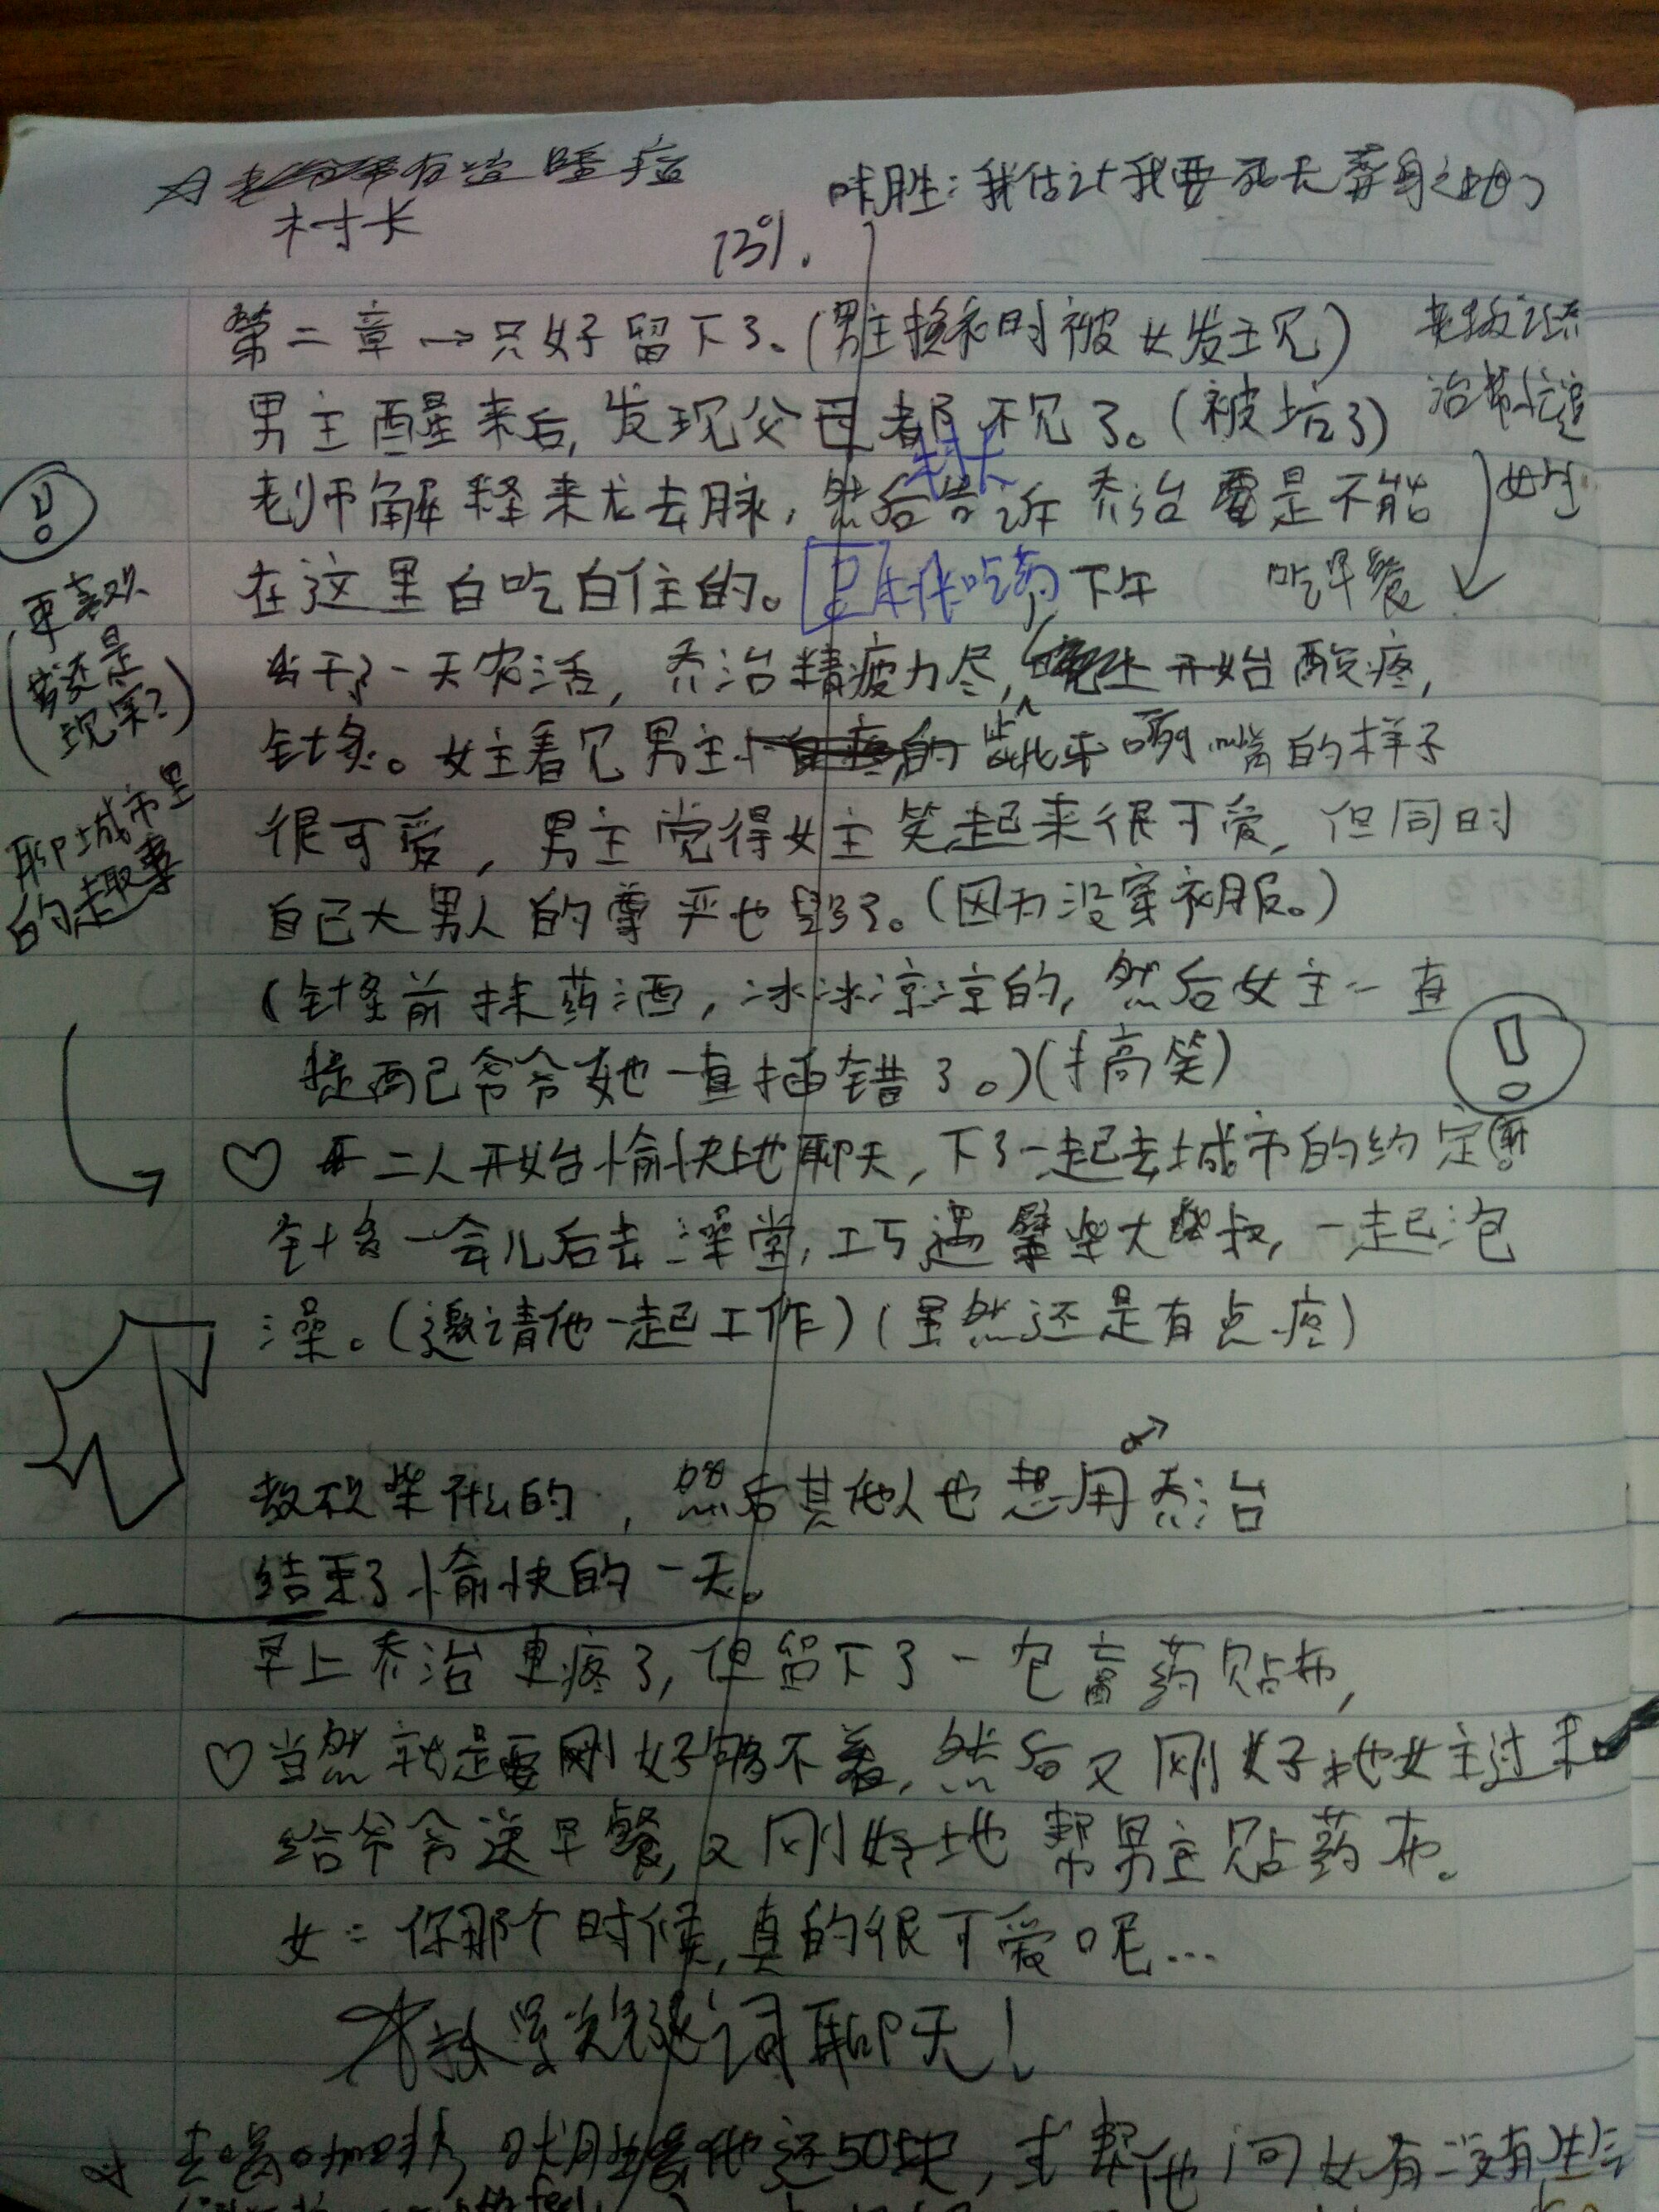 有这睡
村长
咔胜：我估计我要死无葬身之地了
13%.
第二章→只好留下了。(男主换衣时被女发现)
男主醒来后,发现父母都不见了。(被坑了)
老师解释来龙去脉,然后告诉乔治 是不能
村长
女生
在这里白吃白住的。吃药 下午
吃早餐
干了一天农活,乔治精疲力尽, 开始酸疼,
更喜欢
我还是
现实?
针灸。女主看见男主 的 呲牙咧嘴的样子
很可爱,男主觉得女主笑起来很可爱,但同时
聊城市里
的趣事
自己大男人的尊严也 了。(因为没穿衣服。)
(针灸前抹药酒,冰冰凉凉的,然后女主一直
提醒己爷爷她一直插错了。)(搞笑)
♡ 二人开始愉快地聊天,下了一起去城市的约定
针灸一会儿后去澡堂,巧遇劈柴大叔,一起泡
澡。(邀请他一起工作)(虽然还是有点疼)
教砍柴什么的,然后其他人也想用乔治
结束了愉快的一天。
早上乔治更疼了,但留下了一包膏药贴布,
♡当然就是要刚好够不着,然后又刚好地女主过来
给爷爷送早餐,又刚好地帮男主贴药布。
女:你那个时候,真的很可爱呢...
聊天!
去喝咖啡 还50块,求帮他问女有没有
feel